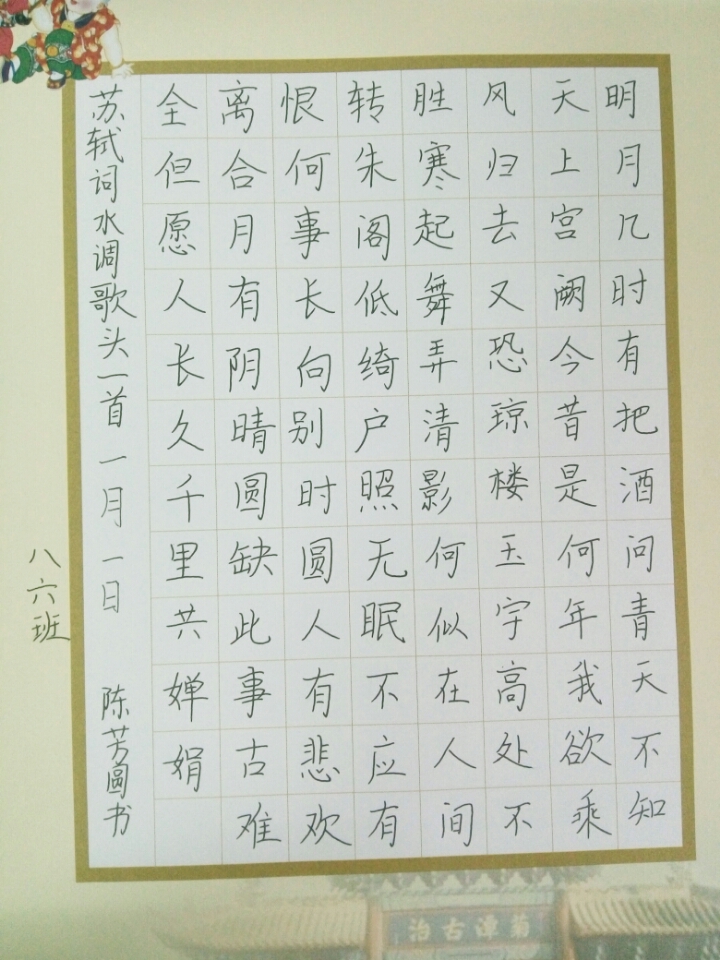 明月几时有把酒问青天不知
天上宫阙今昔是何年我欲乘
风归去又恐琼楼玉宇高处不
胜寒起舞弄清影何似在人间
转朱阁低绮户照无眠不应有
恨何事长向别时圆人有悲欢
离合月有阴晴圆缺此事古难
全但愿人长久千里共婵娟
苏轼词水调歌头一首一月一日 陈芳圆书
八六班
菊潭古治